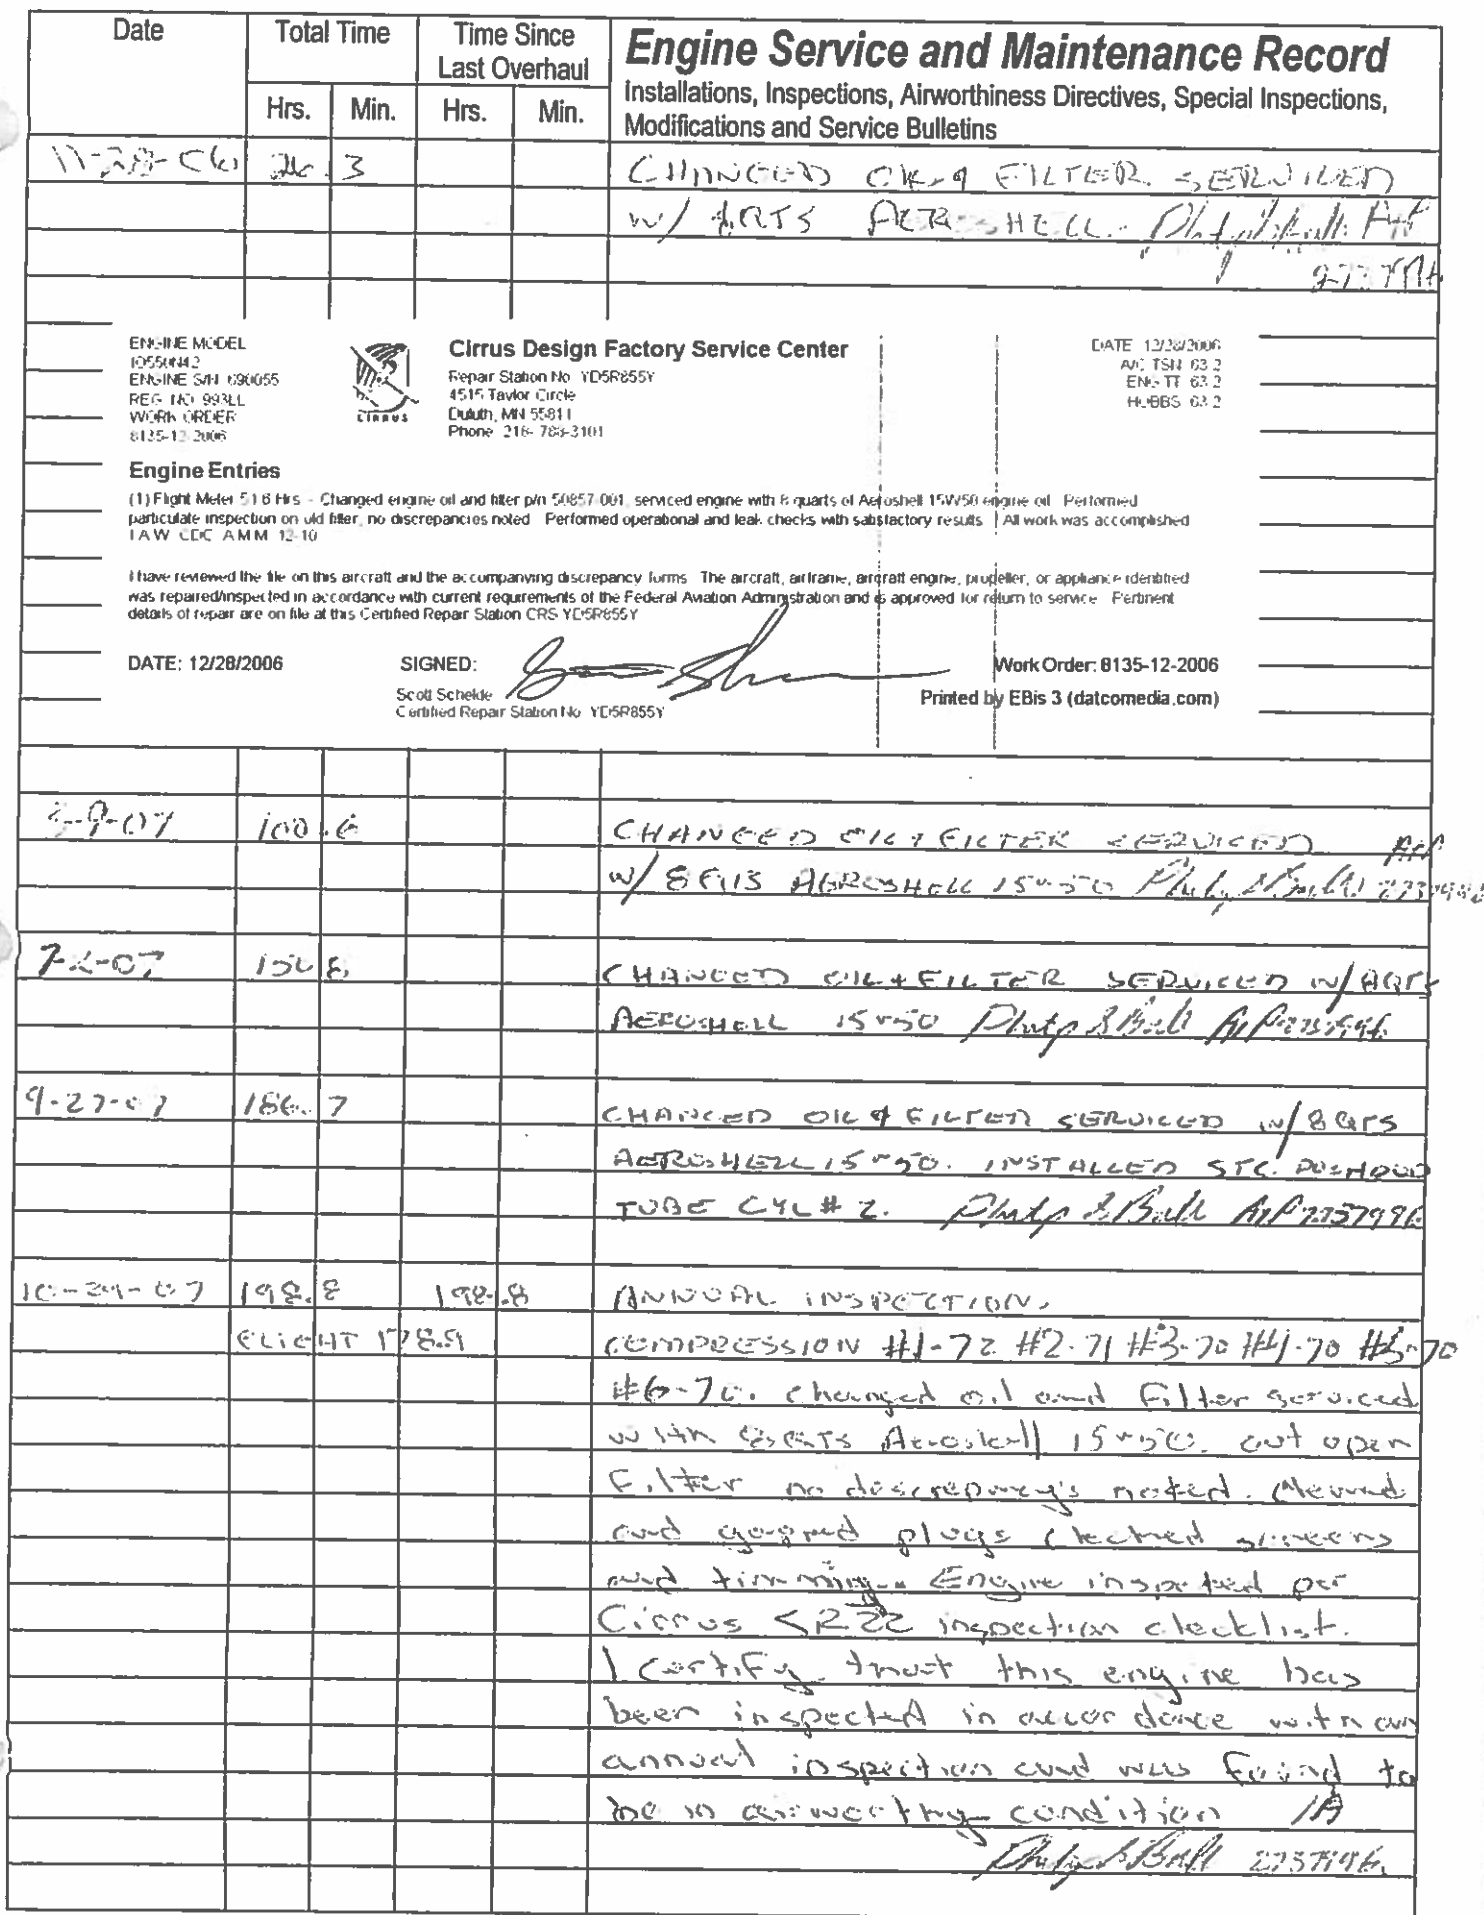 Date
Total Time
Time Since
Last Overhaul
Hrs. Min. Hrs. Min.
Engine Service and Maintenance Record
Installations, Inspections, Airworthiness Directives, Special Inspections,
Modifications and Service Bulletins
.3 CHANGED OIL & FILTER SERVICED
w/ QRTS AEROSHELL
ENGINE MODEL
ENGINE S/N 690055
REG NO 993LL
WORK ORDER
8135-12-2006
CIRRUS
Cirrus Design Factory Service Center
Repair Station No YD5R855Y
4515 Taylor Circle
Duluth, MN 55811
Phone 218-788-3101
DATE 12/28/2006
A/C TSN 63.2
ENG TT 63.2
HOBBS 63.2
Engine Entries
(1) Flight Meter 51.6 Hrs - Changed engine oil and filter p/n 50857-001, serviced engine with 8 quarts of Aeroshell 15W50 engine oil Performed
particulate inspection on old filter, no discrepancies noted Performed operational and leak checks with satisfactory results All work was accomplished
IAW CDC AMM 12-10
I have reviewed the file on this aircraft and the accompanying discrepancy forms The aircraft, airframe, aircraft engine, propeller, or appliance identified
was repaired/inspected in accordance with current requirements of the Federal Aviation Administration and is approved for return to service Pertinent
details of repair are on file at this Certified Repair Station CRS YD5R855Y
DATE: 12/28/2006
SIGNED:
Scott Schelde
Certified Repair Station No YD5R855Y
Work Order: 8135-12-2006
Printed by EBis 3 (datcomedia.com)
100.6 CHANGED OIL & FILTER SERVICED A&P
w/ 8 QTS AEROSHELL 15W50
CHANGED OIL & FILTER SERVICED w/ 8QTS
AEROSHELL 15W50 Philip S Ball A&P 2737996
9-27-07 186.7 CHANGED OIL & FILTER SERVICED w/ 8 QTS
AEROSHELL 15W50. INSTALLED STC. PUSHROD
TUBE CYL # 2. Philip S Ball A&P 2737996
198.8 198.8 ANNUAL INSPECTION.
FLIGHT 178.9 COMPRESSION #1-72 #2-71 #3-70 #4-70 #5-70
#6-70. changed oil and Filter serviced
with Aeroshell 15W50. cut open
Filter no noted.
and plugs screens
and timming. Engine inspected per
Cirrus SR22 inspection checklist.
I certify that this engine has
been inspected in accordance with an
annual inspection and was Found to
be in airworthy condition IA
Philip S Ball 2737996